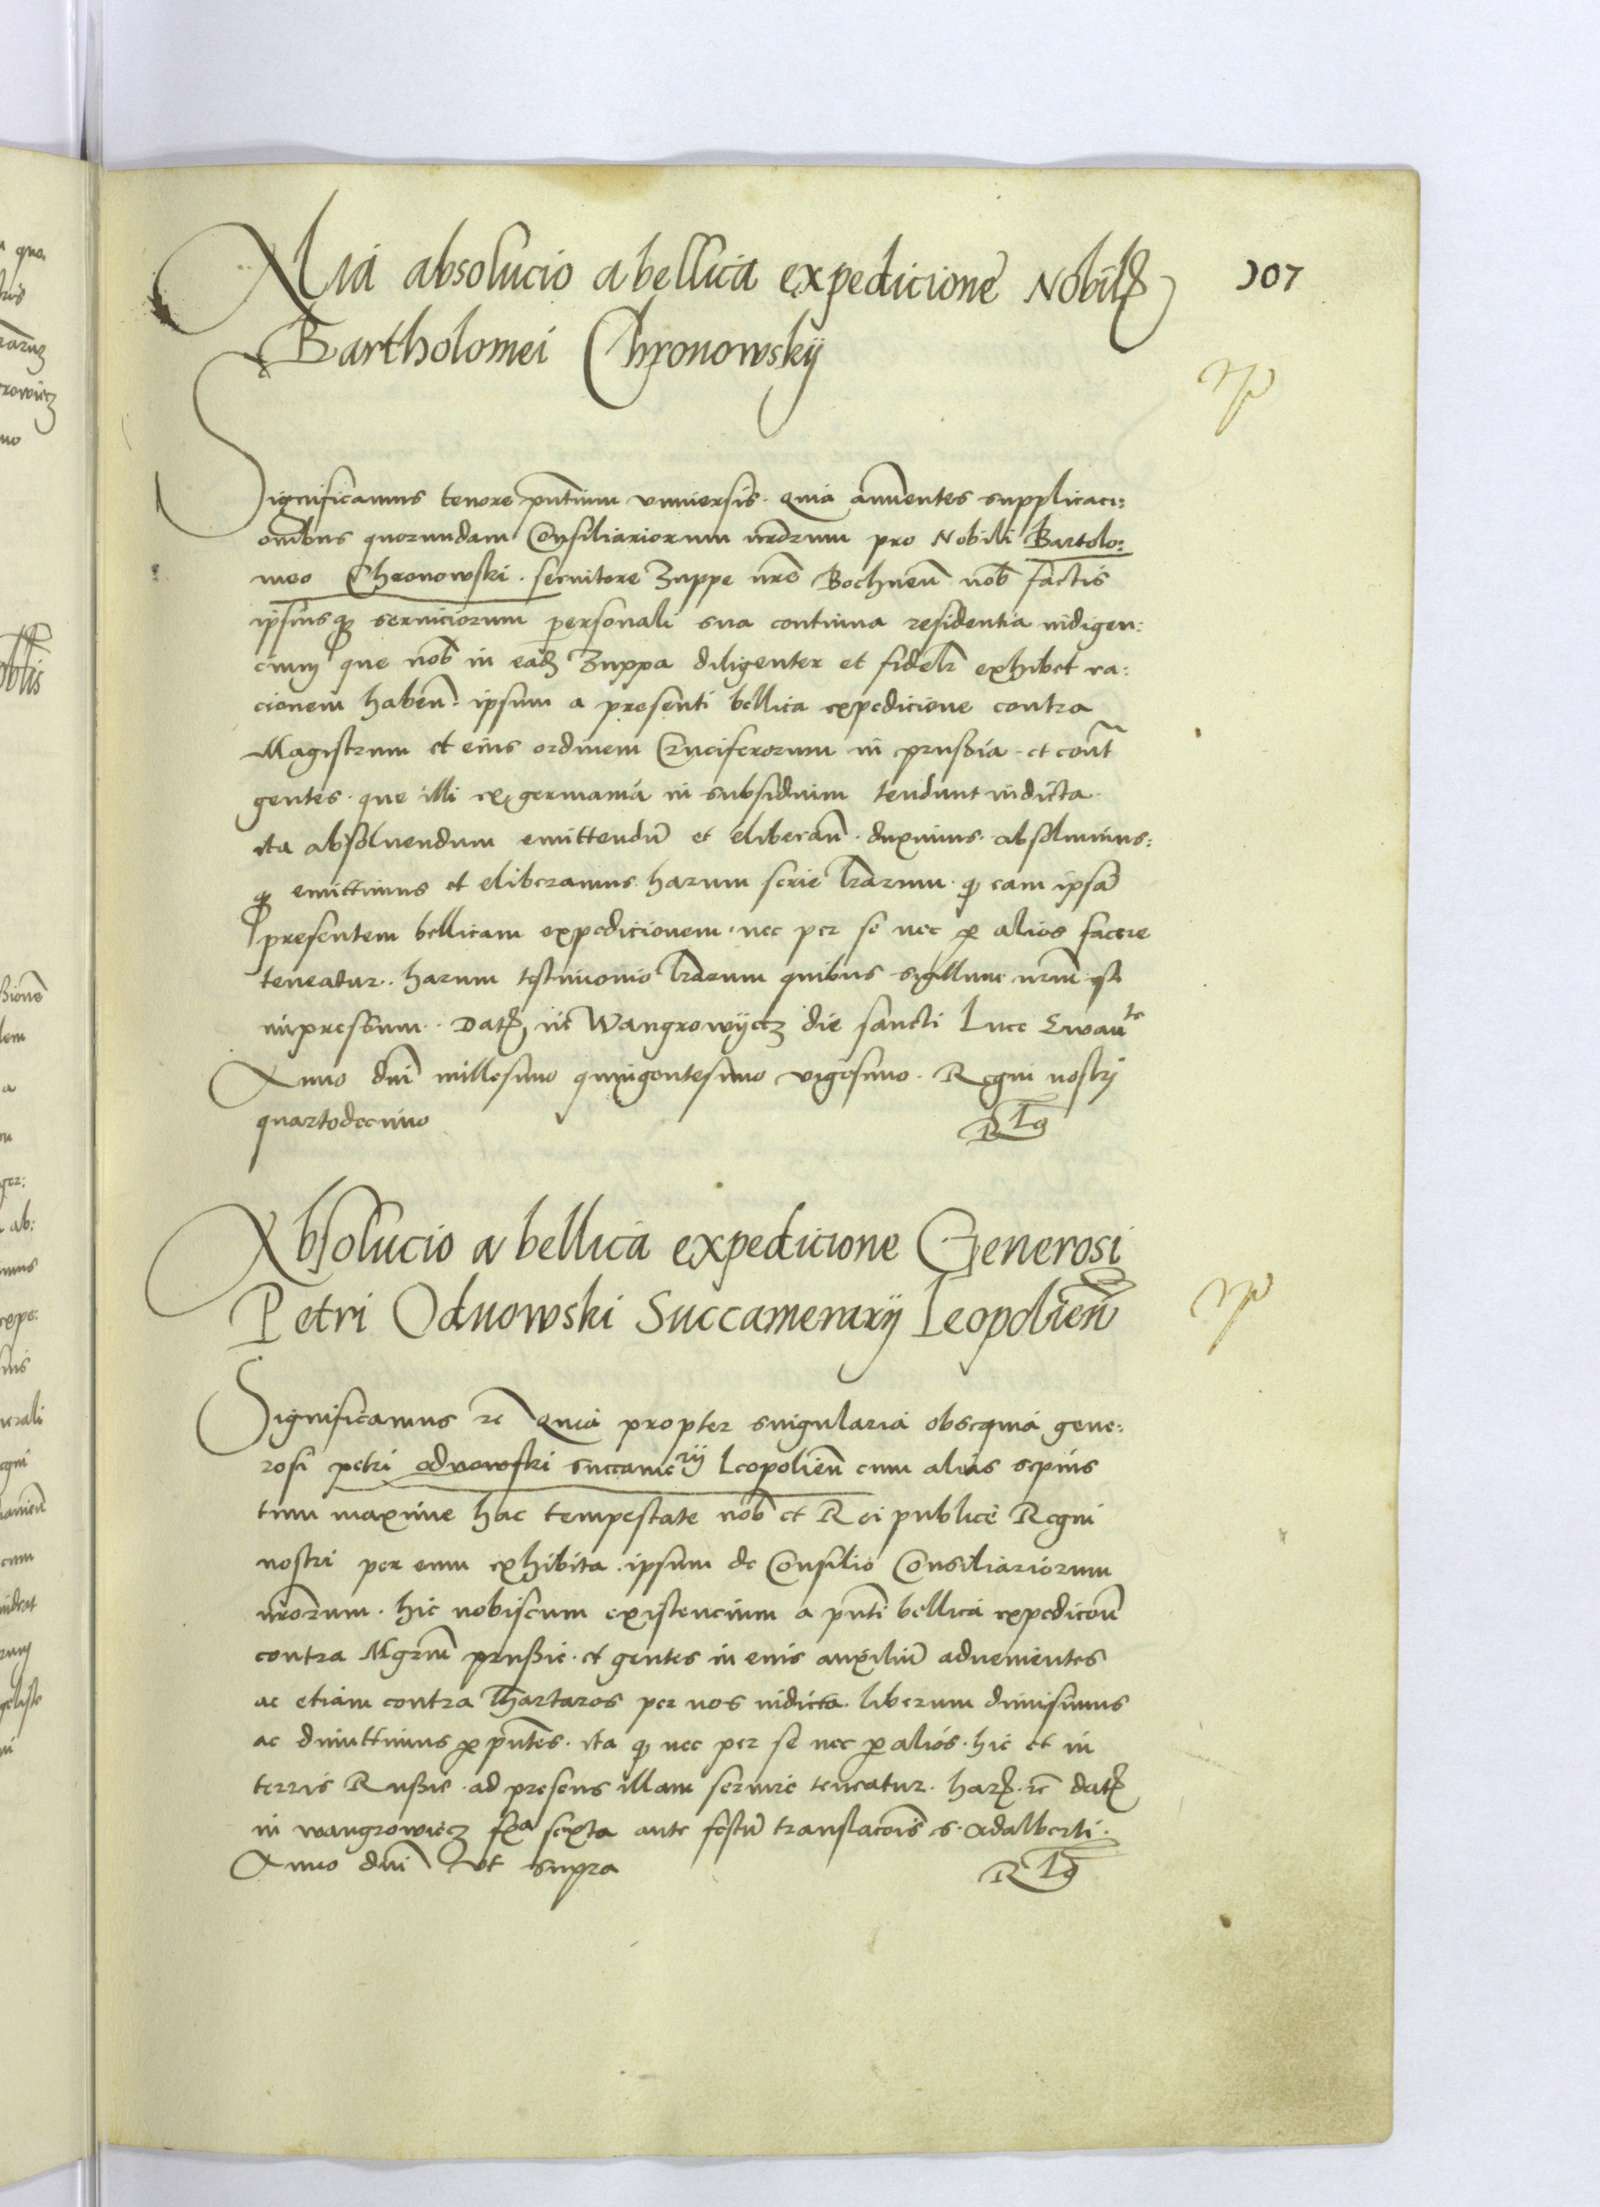 Alia absolucio a bellica expedicione Nobil
307
Bartholomei Chronowskij
Significamus tenore pntium vniuersis. Quia annuentes supplicaci:
onibus quorundam Consiliariorum nrorum pro Nobili Bartolo:
meo Chronowski. seruitore Zuppe nre Bochnen nob factis
ipsiusq seruiciorum personali sua continua residentia indigen:
cium que nob in ead Zuppa diligenter et fidelr exhibet ra:
cionem haben. ipsum a presenti bellica expedicione contra
Magistrum et eius ordinem Cruciferorum in prussia. et cont
gentes. que illi ex germania in subsidium tendunt indicta
ita absoluendum emittendu et eliberan. duximus. absoluimus:
q emittimus et eliberamus. harum serie lrarum. q eam ipsa
presentem bellicam expedicionem. nec per se nec p alios facere
teneatur. harum testimonio lrarum quibus sigillum nrm est
impressum. Dat in Wangrowijecz die sancti Luce Ewante
Anno dni millesimo quingentesimo vigesimo. Regni nostri
quartodecimo
Absolucio a bellica expedicione Generosi
Petri Odnowski Succamerarij Leopolien
Significamus rc Quia propter singularia obsequia gene:
rosi petri odnowski succamerij Leopolien cum alias sepius
tum maxime hac tempestate nob et Rei publice Regni
nostri per eum exhibita. ipsum de Consilio Consiliariorum
nrorum. hic nobiscum existencium a pnti bellica expedicon
contra Mgrm prussie. et gentes in eius auxiliu aduenientes
ac etiam contra Thartaros per nos indicta. liberum dimisimus
ac dimittimus p pntes. ita q nec per se nec p alios. hic et in
terris Russie. ad presens illam seruire teneatur. har. rc dat
in wangrowiecz fa sexta ante festu translacois s. Adalberti.
Anno dni vt supra